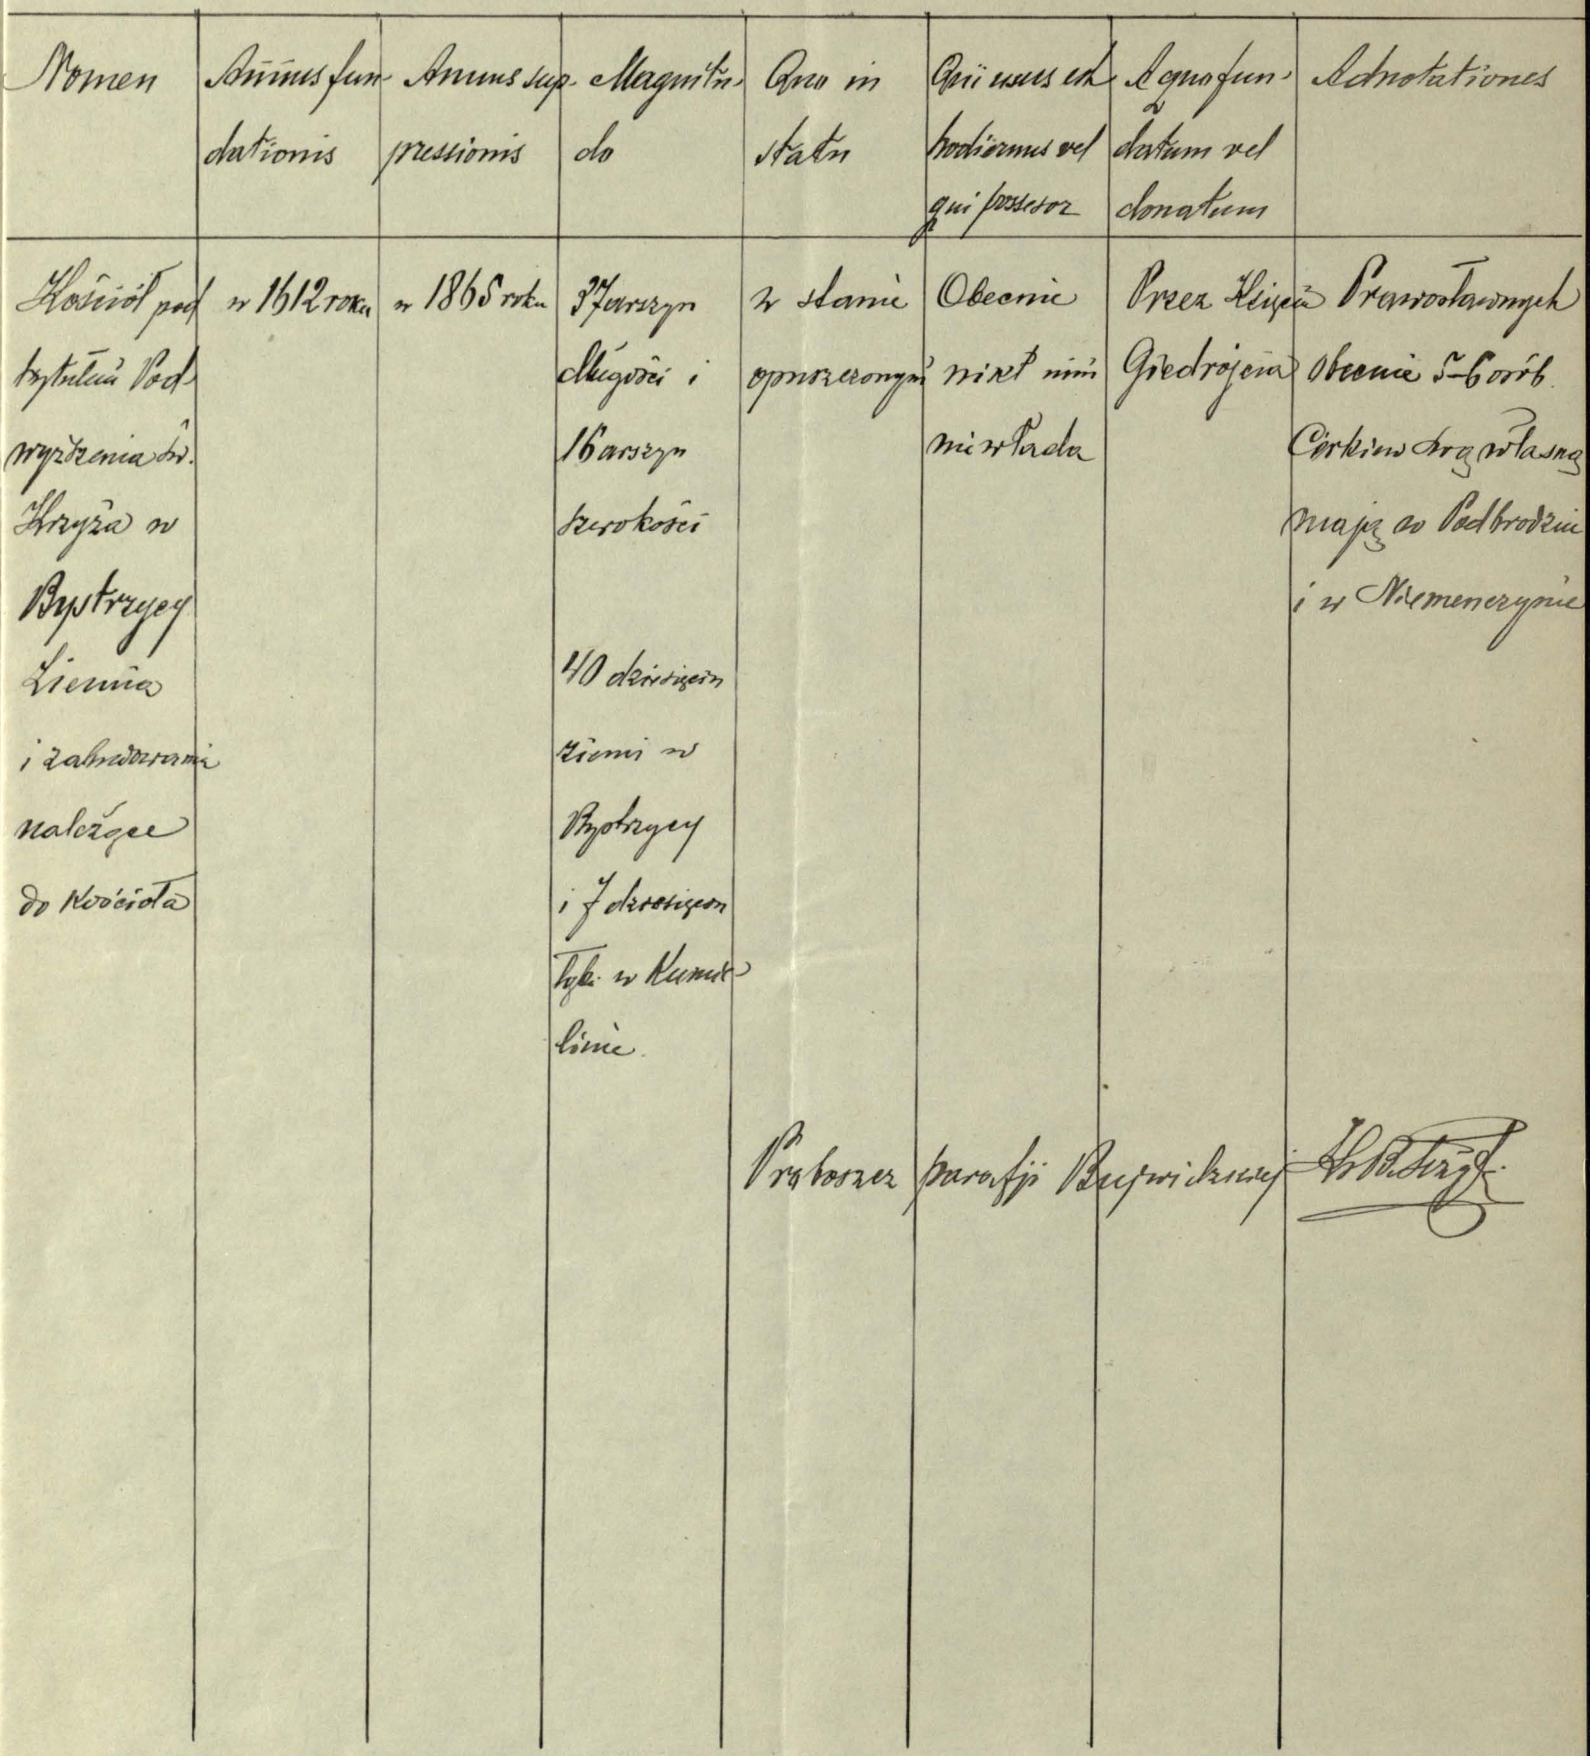 Nomen
Annus fun-
dationis
Annus sup-
pressionis
Magnitu-
do
Quo in
statu
Qui usus est
hodiernus vel
qui possesor
A quo fun-
datum vel
donatum
Adnotationes
Kościół pod
tytułem Pod-
wyższenia św.
Krzyża w
Bystrzycy
Ziemia
i zabudowania
należące
do Kościoła
w 1612 roku
w 1865 roku
37 arszyn
długości i
16 arszyn
szerokości
40 dziesięcin
ziemi w
Bystrzycy
i 7 dziesięcin
łąki w
linie.
w stanie
opuszczonym
Obecnie
nikt nim
nie włada
Przez Księcia
Giedrojcia
Prawosławnych
obecnie 5-6 osób.
Cerkiew swą własną
mają w Podbrodziu
i w Niemenczynie
Proboszcz parafji Bujwidzkiej